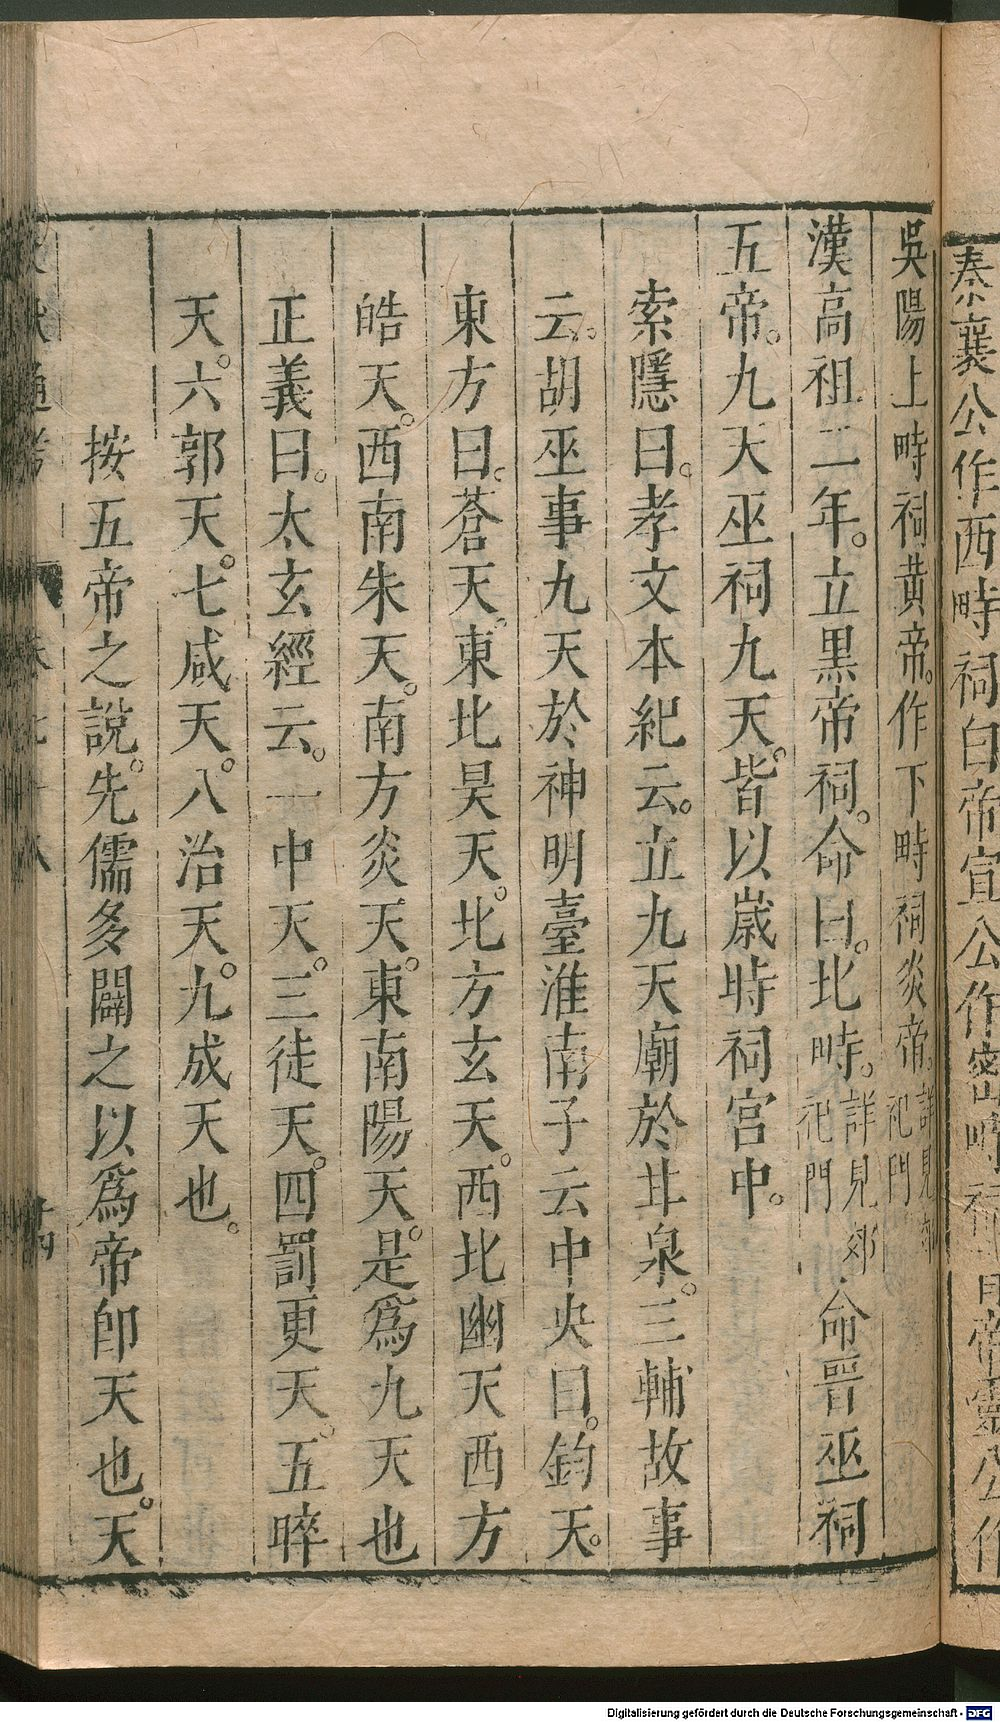 秦襄公作西畤祠白帝宣公作密畤祠青帝靈公作
吳陽上畤祠黄帝。作下畤祠炎帝。詳見郊祀門
漢高祖二年。立黒帝祠。命曰。北畤。詳見郊祀門命晋巫祠
五帝。九天巫祠九天。皆以嵗時祠宫中。
索隱曰。孝文本紀云。立九天廟於甘泉。三輔故事
云。胡巫事九天於神明臺淮南子云中央曰。鈞天。
東方曰。蒼天。東北旻天。北方玄天。西北幽天西方
皓天。西南朱天。南方炎天。東南陽天。是爲九天也
正義曰。太玄經云。一中天。三徒天。四罰更天。五晬
天。六郭天。七咸天。八治天。九成天也。
按五帝之說。先儒多闢之以爲帝卽天也。天
Digitalisierung gefördert durch die Deutsche Forschungsgemeinschaft - DFG